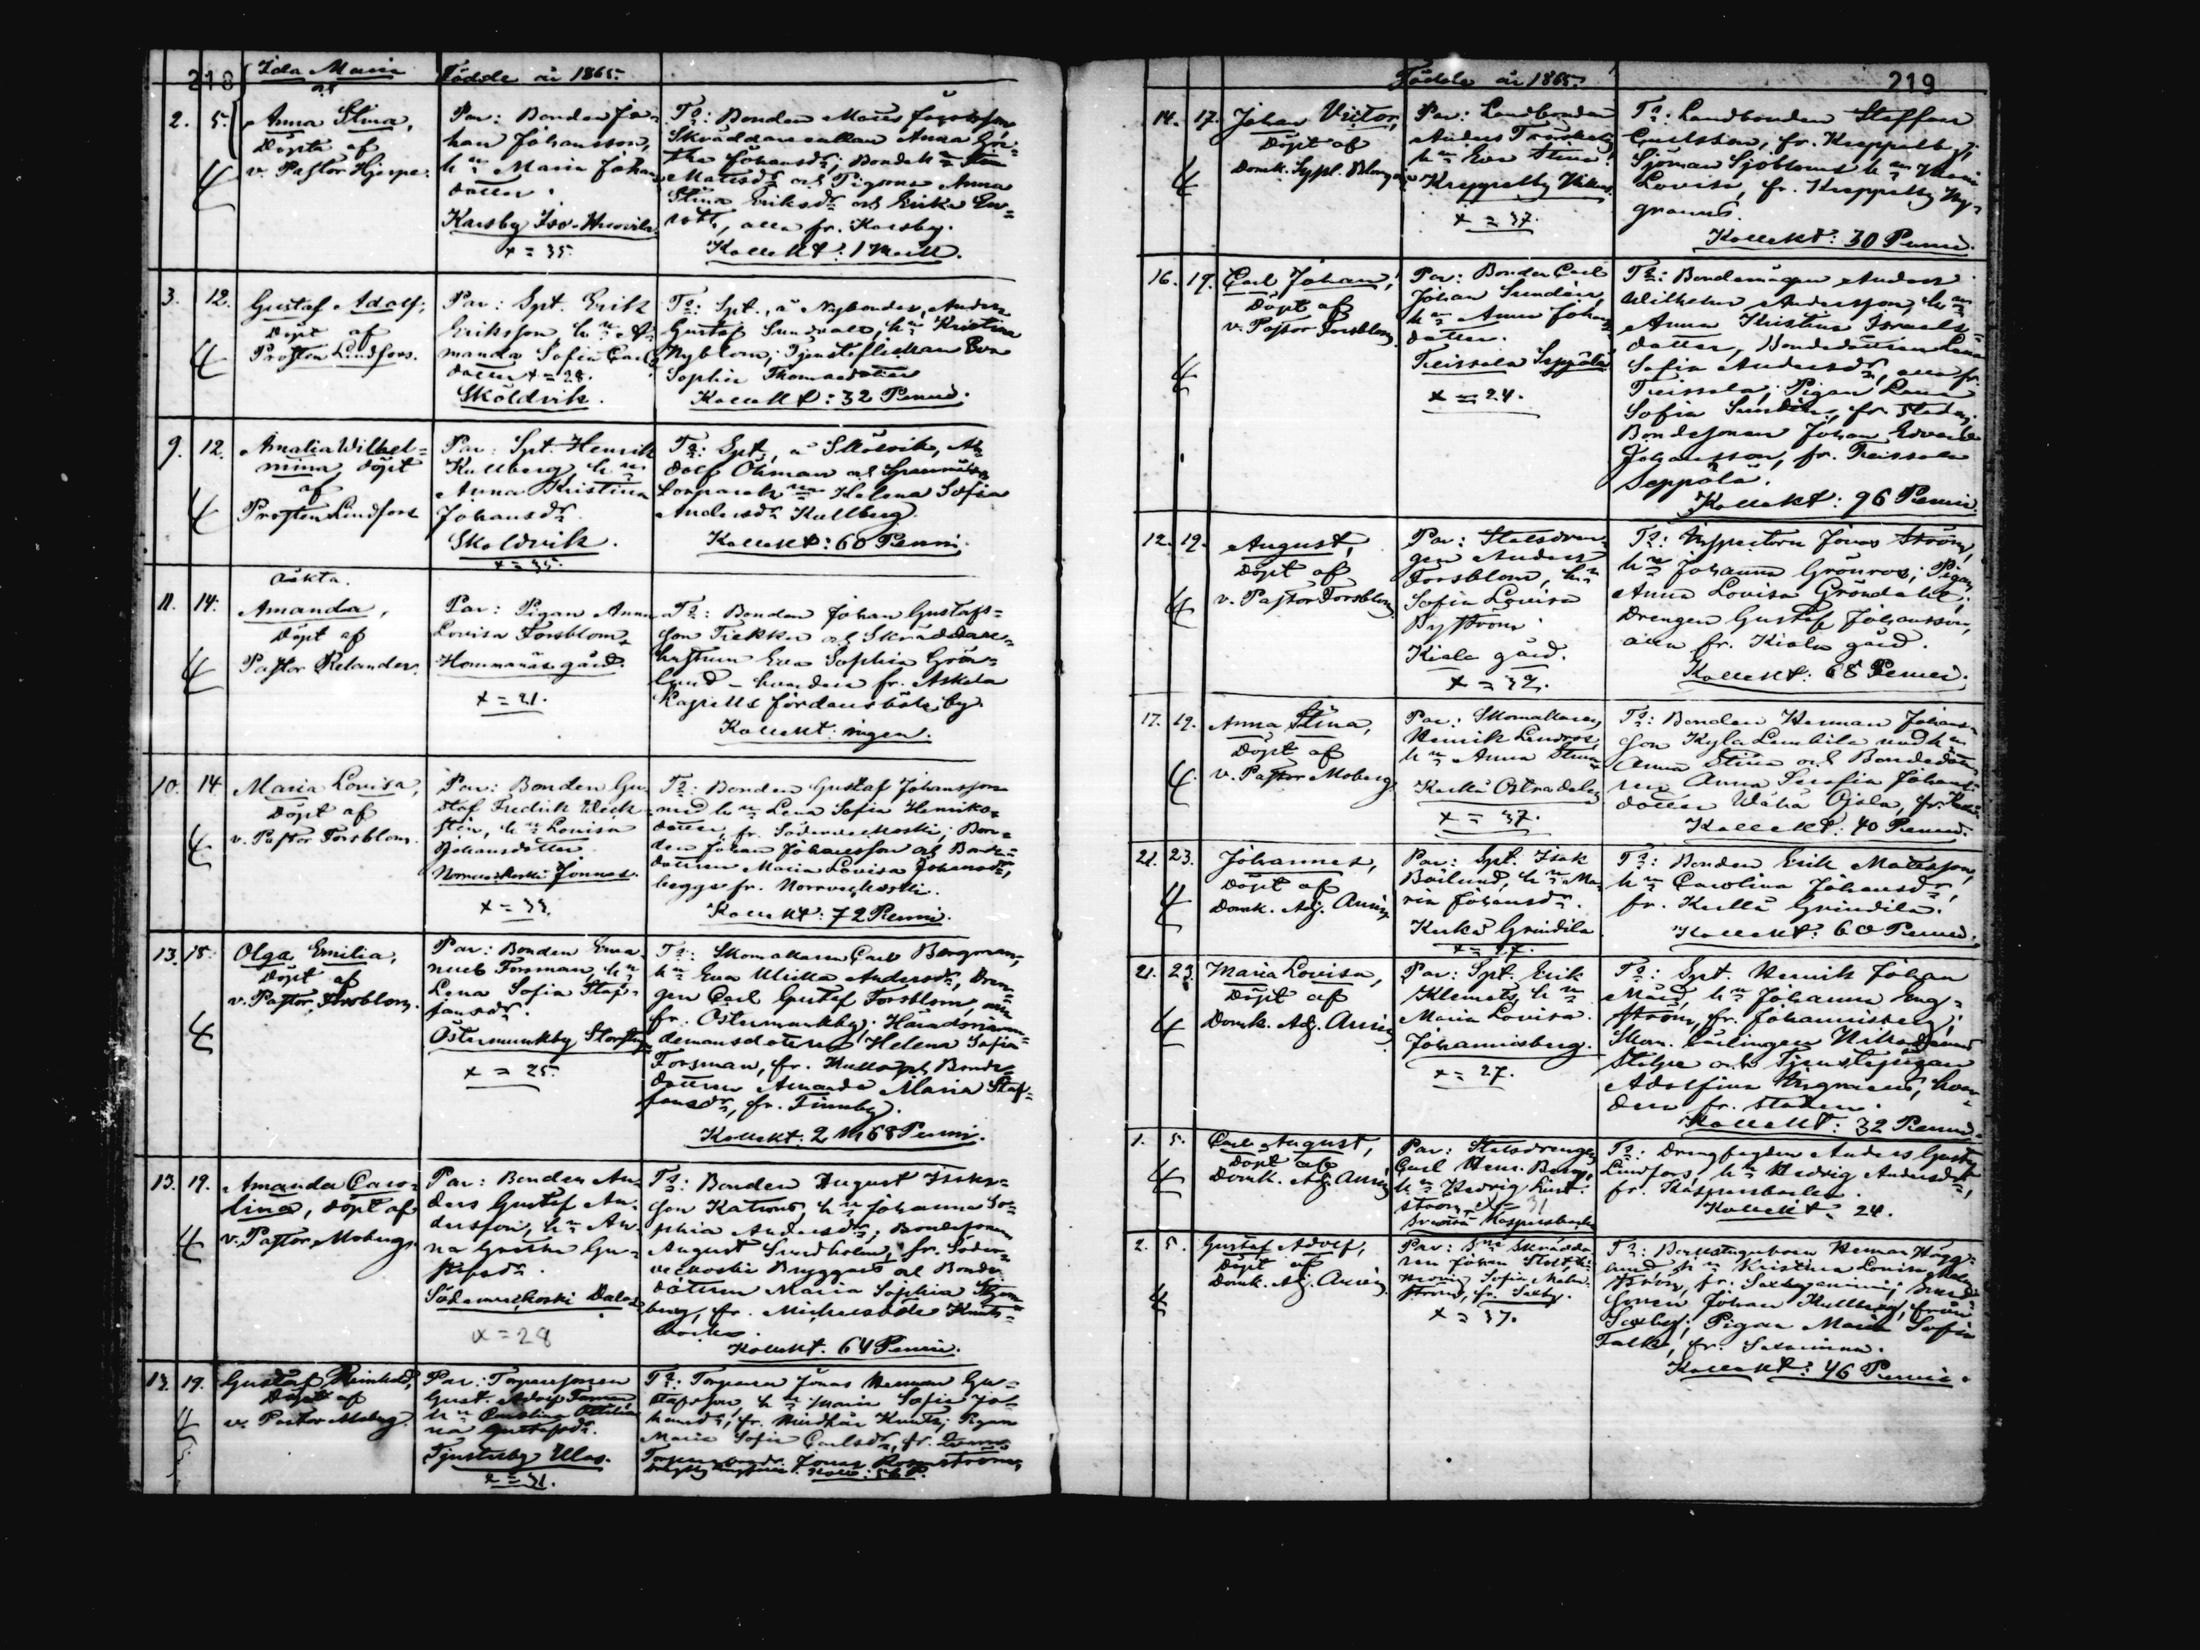 218
Ida Maria
Födde år 1865.
och
2. 5.
Anna Stina,
Döpta af
v. Pastor Hjerpe.
Par: Bonden Jo-
han Johansson,
h:u Maria Johans
dotter.
Karsby Iso-
x = 35.
T?: Bonden Matts
Skräddareenkan Anna Gre-
tha Johansdr; Bondeh:u
Mattsdr och Pigorna Anna
Stina Eriksdr och Erika
alla fr. Karsby.
Kollekt: 1 Mark.
3. 12.
Gustaf Adolf,
Döpt af
Prosten Lindfors.
Par: Spt. Erik
Eriksson, h:u A-
manda Sofia Carls
dotter x = 28.
Sköldvik.
T?: Spt., å Nybondas, Anders
Gustaf Sundvall, h:u Kristina
Nyblom; Tjensteflickan Eva
Sophia Thomasdotter
Kollekt: 32 Penni.
9. 12.
Amalia Wilhel=
mina, döpt
af
Prosten Lindfors
Par: Spt. Henrik
Kullberg, h:u
Anna Kristina
Johansdr.
Sköldvik.
x = 35.
T?: Spt, å Sköldvik, A-
dolf Öhman och
Helena Sofia
Andersdr Kullberg.
Kollekt: 60 Penni.
oäkta.
11. 14.
Amanda,
Döpt af
Pastor Relander.
Par: Pigan Anna
Lovisa Forsblom,
Hommanäs gård.
x = 21.
T?: Bonden Johan Gustafs=
son Tiekka och Skräddare=
hustrun Eva Sophia Grön=
lund - hvardera fr. Askola
Kapells Jordansböle by.
Kollekt: ingen.
10. 14
Maria Lovisa,
Döpt af
v. Pastor Forsblom.
Par: Bonden Gu-
staf Fredrik Weck
sten, h:u Lovisa
Johansdotter
Norrveckoski Jonnas.
x = 33.
T?: Bonden Gustaf Johansson
med h:u Lena Sofia Henriks-
dotter, fr. Söderveckoski; Bon=
den Johan Johansson och Bonde=
dottren Maria Lovisa Johansdr,
begge fr. Norrveckoski.
Kollekt: 72 Penni.
13. 18.
Olga Emilia,
Döpt af
v. Pastor Forsblom.
Par: Bonden Ema
nuel Forsman, h:u
Lena Sofia Staf-
fansdr.
Östermunkby
x = 25.
T?: Skomakaren Carl Bergman,
h:u Eva Ulrika Andersdr, Dren=
gen Carl Gustaf Forsblom, alla
fr. Östermunkby; Häradsnäm
demansdottren Helena Sofia
Forsman, fr. Kullo och Bonde
dottren Amanda Maria Staf=
fansdr, fr. Finnby.
Kollekt: 2 M 68 Penni.
13. 19.
Amanda Caro-
lina, döpt af
v. Pastor Moberg.
Par: Bonden An-
ders Gustaf An-
dersson, h:u An-
na Greta Gu-
stafsdr.
Söderveckoski Dalas
x = 28
T?: Bonden August Isaks=
son Katrins, h:u Johanna So-
phia Andersdr; Bondesonen
August Sundholm, fr. Söder-
veckoski Bryggars och Bonde
dottren Maria Sophia
berg, fr. Mickelsböle Knuts-
backa.
Kollekt. 64 Penni.
13. 19.
Gustaf Reinhold,
Döpt af
v. Pastor Moberg.
Par: Torparesonen
Gust. Adolf Forsman
h:u Carolina
na Gustafsdr.
Tjusterby Ulas.
x = 31.
T?: Torparen Jonas Herman Gu=
stafsson, h:u Maria Sofia Jo-
hansdr, fr. Knuts; Pigan
Maria Sofia Carlsdr, fr.
Jonas Rosenström,
219
Födde år 1865.
14. 17.
Johan Victor,
Döpt af
Domk. Sypl.
Par: Landbonden
Anders
h:u Eva Stina
Kreppelby
x = 37.
T?: Landbonden Staffan
Carlsson, fr. Kreppelby;
Sjöman Sjöbloms h:u Maria
Lovisa, fr. Kreppelby Ny-
granns.
Kollekt: 30 Penni.
16. 19.
Carl Johan,
Döpt af
v. Pastor Forsblom
Par: Bonden Carl
Johan Sundén,
h:u Anna Johans
dotter.
Treissola Seppälä
x = 24.
T?: Bondemågen Anders
Wilhelm Andersson, h:u
Anna Kristina Israels-
dotter, Bondedottren Lena
Sofia Andersdr, alla fr.
Treissola; Pigan Lena
Sofia Sundén, fr. staden;
Bondesonen Johan Edvard
Johansson, fr. Treissola
Seppälä.
Kollekt: 96 Penni.
12. 19.
August,
Döpt af
v. Pastor Forsblom
Par: Statsdren-
gen Anders
Forsblom, h:u
Sofia Lovisa
Byström
Kiala gård.
x = 32.
T?: Inspektorn Jonas Ström,
h:u Johanna Grönros; Pigan
Anna Lovisa Gröndahl;
Drengen Gustaf Johansson,
alla fr. Kiala gård.
Kollekt: 68 Penni.
17. 19.
Anna Stina,
Döpt af
v. Pastor Moberg
Par: Skomakaren
Henrik Lindros,
h:u Anna Stina
x = 37.
T?: Bonden Herman Johans-
son Kylä Lembilä med h:u
Anna Stina och Bondedott
ren Anna Serafia Johans-
dotter Wähä Ojala, fr.
Kollekt: 40 Penni.
21. 23.
Johannes,
Döpt af
Domk. Adj.
Par: Spt. Isak
Backlund, h:u Ma-
ria Johansdr.
Grindila
x = 27.
T?: Bonden Erik Mattsson,
h:u Carolina Johansdr,
fr. Grindila.
Kollekt: 60 Penni.
21. 23.
Maria Lovisa,
Döpt af
Domk. Adj.
Par: Spt. Erik
Klemets, h:u
Maria Lovisa.
Johannisberg.
x = 27.
T?: Spt. Henrik Johan
h:u Johanna Eng-
ström, fr. Johannisberg;
Skom. lärlingen
och Tjenstepigan
Adolfina hvar-
dera fr. staden.
Kollekt: 32 Penni.
1. 5.
Carl August,
Döpt af
Domk. Adj.
Par: Statsdrengen
Carl Henr. Berg,
h:u Hedvig Lind-
ström x = 31
T?: Drengfogden Anders Gustaf
Lindfors, h:u Hedvig Andersdr,
fr. Kaspersbacka.
Kollekt: 24.
2. 5.
Gustaf Adolf,
Döpt af
Domk. Adj.
Par: Skrädda-
ren Johan
Sofia Malm-
ström, fr. Saxby.
x = 37.
T?: Backstugubon Herman Hägg-
lund h:u Kristina Lovisa Malm
ström, fr.
sonen Johan Kullberg, från
Saxby; Pigan Maria Sofia
Falk, fr.
Kollekt: 46 Penni.